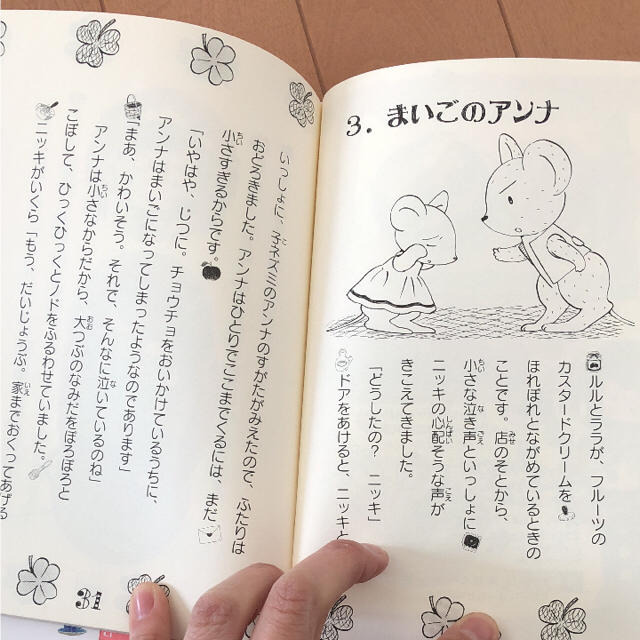 3. まいごのアンナ
ルルとララが、フルーツの
カスタードクリームを
ほれぼれとながめているときの
ことです。店のそとから、
小さな泣き声といっしょに
ニッキの心配そうな声が
きこえてきました。
「どうしたの? ニッキ」
ドアをあけると、ニッキと
いっしょに、子ネズミのアンナのすがたがみえたので、ふたりは
おどろきました。アンナはひとりでここまでくるには、まだ
小さすぎるからです。
「いやはや、じつに。チョウチョをおいかけているうちに、
アンナはまいごになってしまったようなのであります」
「まあ、かわいそう。それで、そんなに泣いているのね」
アンナは小さなからだから、大つぶのなみだをぽろぽろと
こぼして、ひっくひっくとノドをふるわせていました。
ニッキがいくら「もう、だいじょうぶ。家までおくってあげる
31